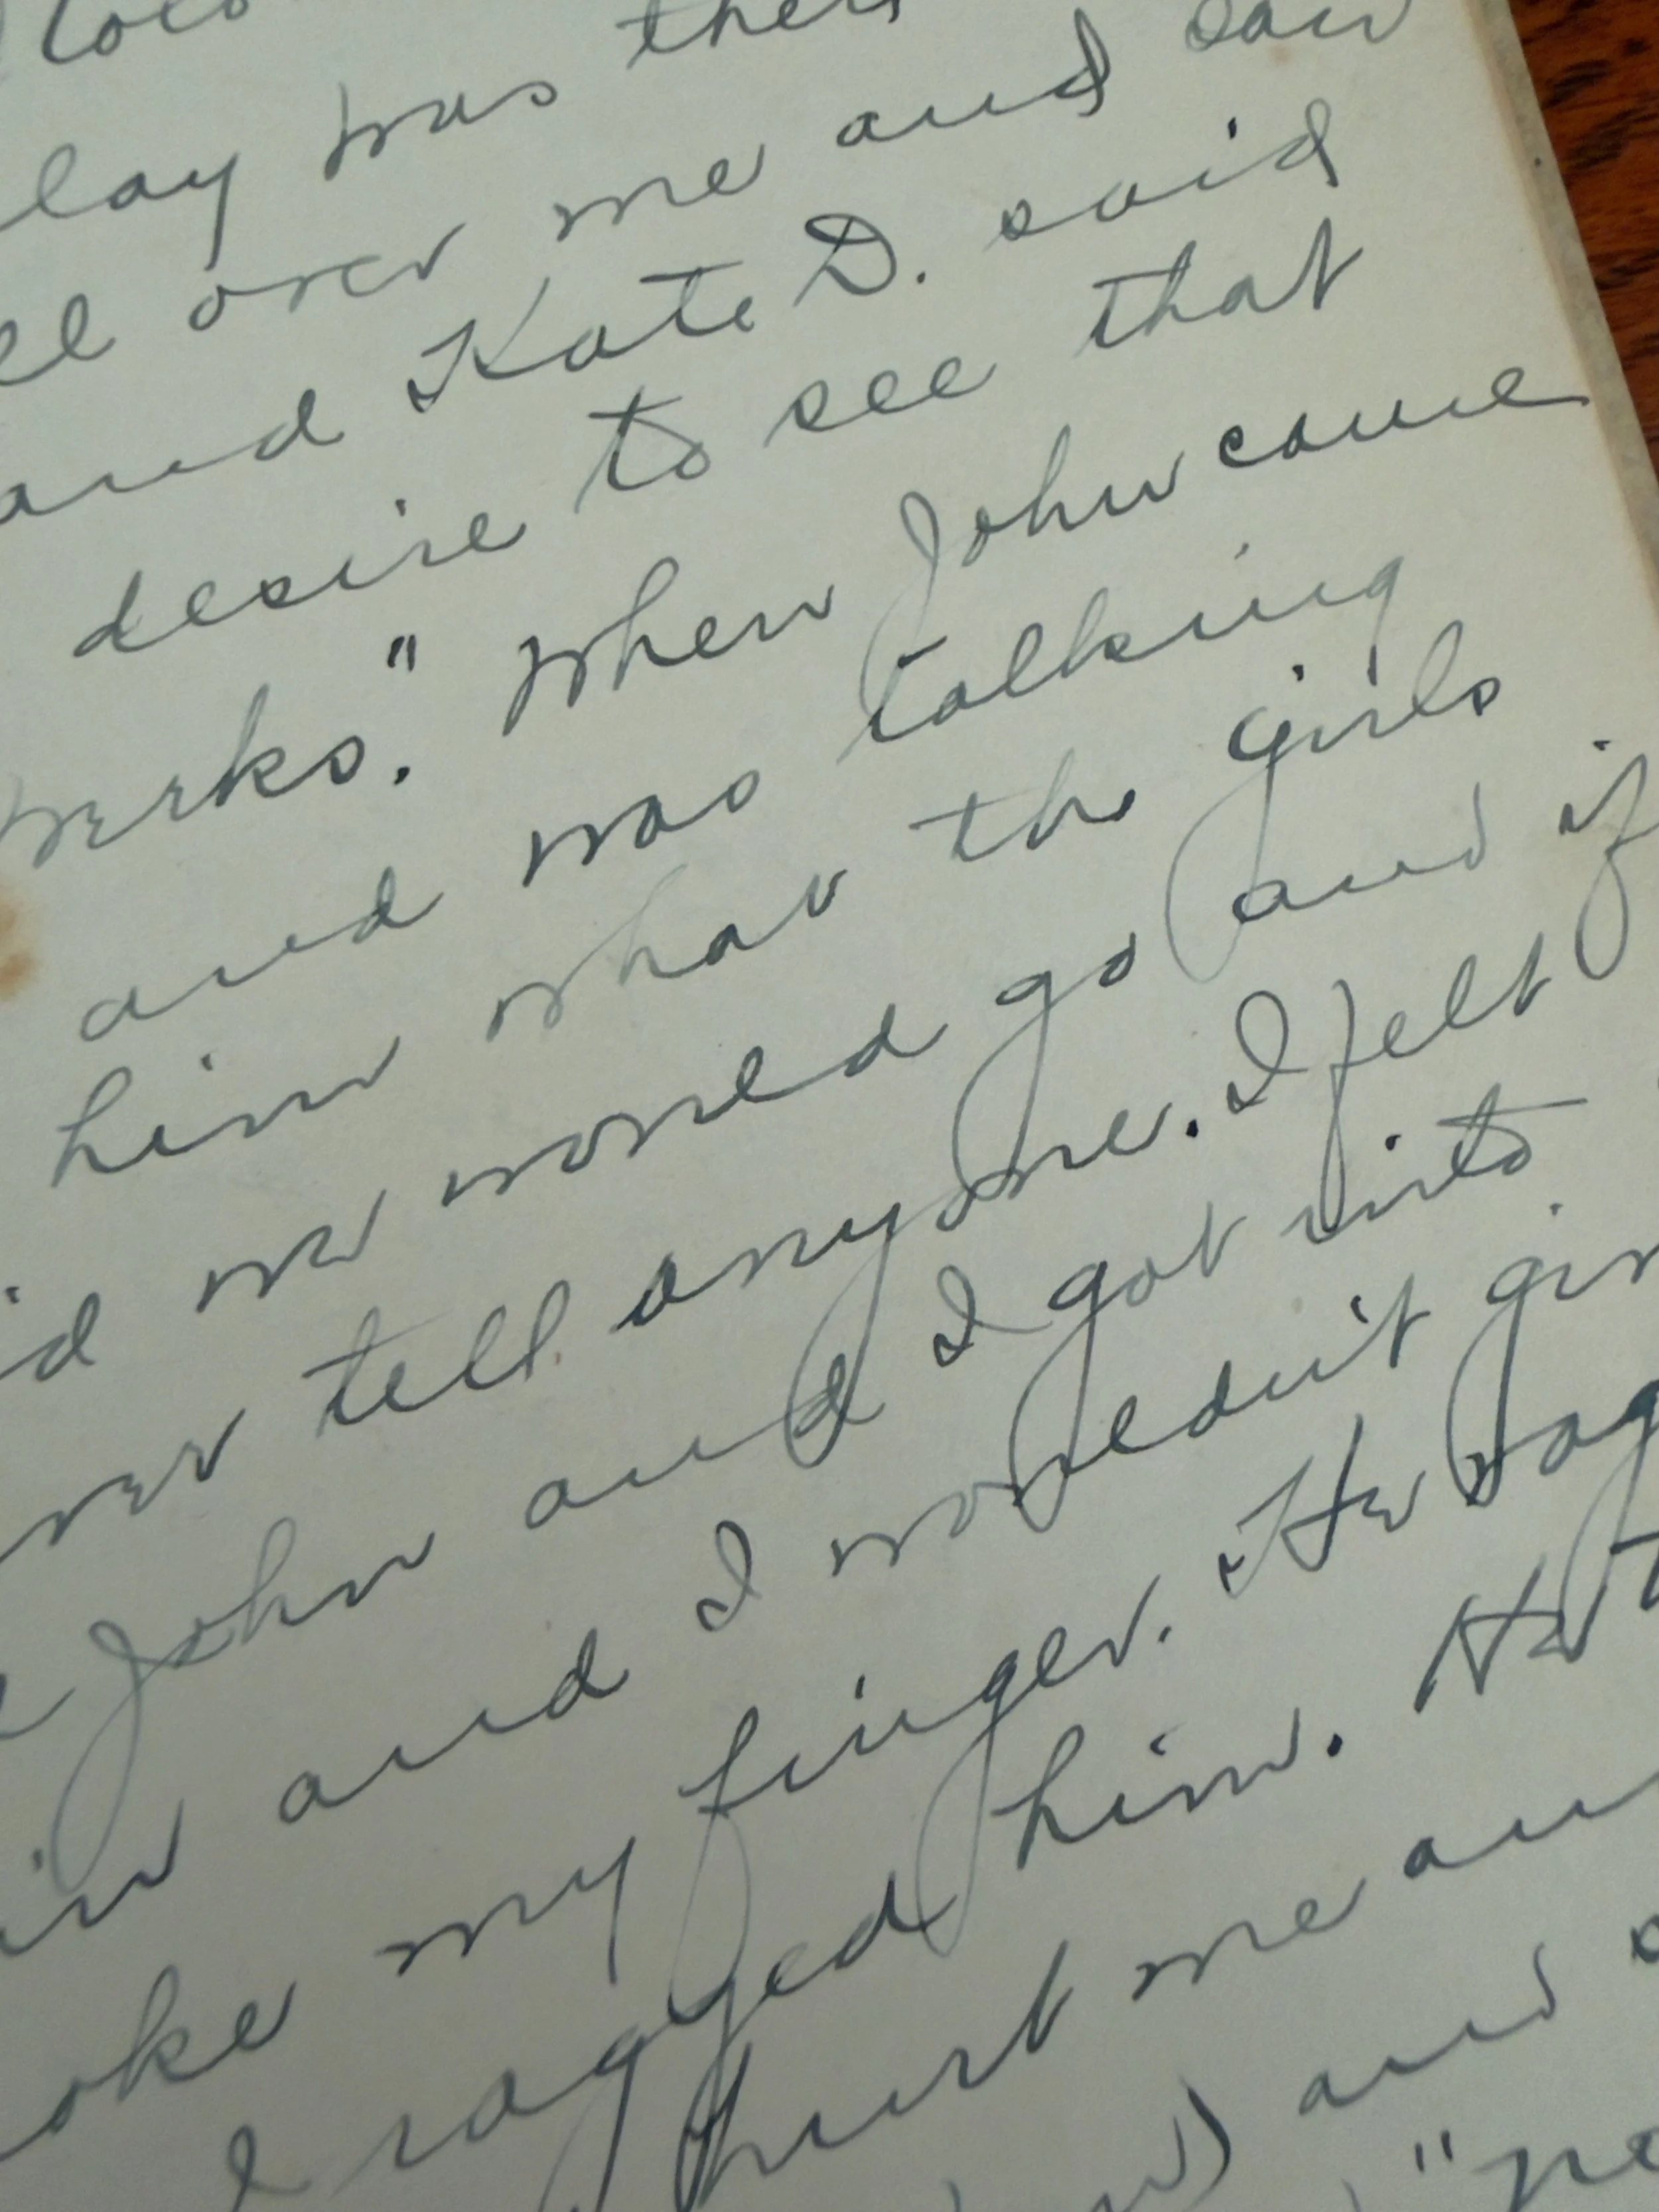 lay was then
over me and saw
and Kate D. said
desire to see that
works." When John came
and was talking
him what the girls
we would go and if
ever tell anyone. I felt
John and I got into
and I wouldn't give
oke my finger. He rag
I ragged him. He t
hurt me an
and